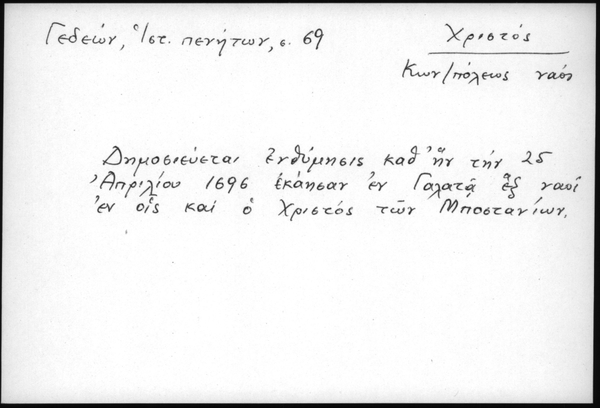 Γεδεών, Ἱστ. πενήτων, σ. 69
Χριστός
Κων/πόλεως ναός
Δημοσιεύεται ἐνθύμησις καθ' ἥν τήν 25
Ἀπριλίου 1696 ἐκάησαν ἐν Γαλατᾷ ἕξ ναοί
ἐν οἷς καί ὁ Χριστός τῶν Μποστανίων.